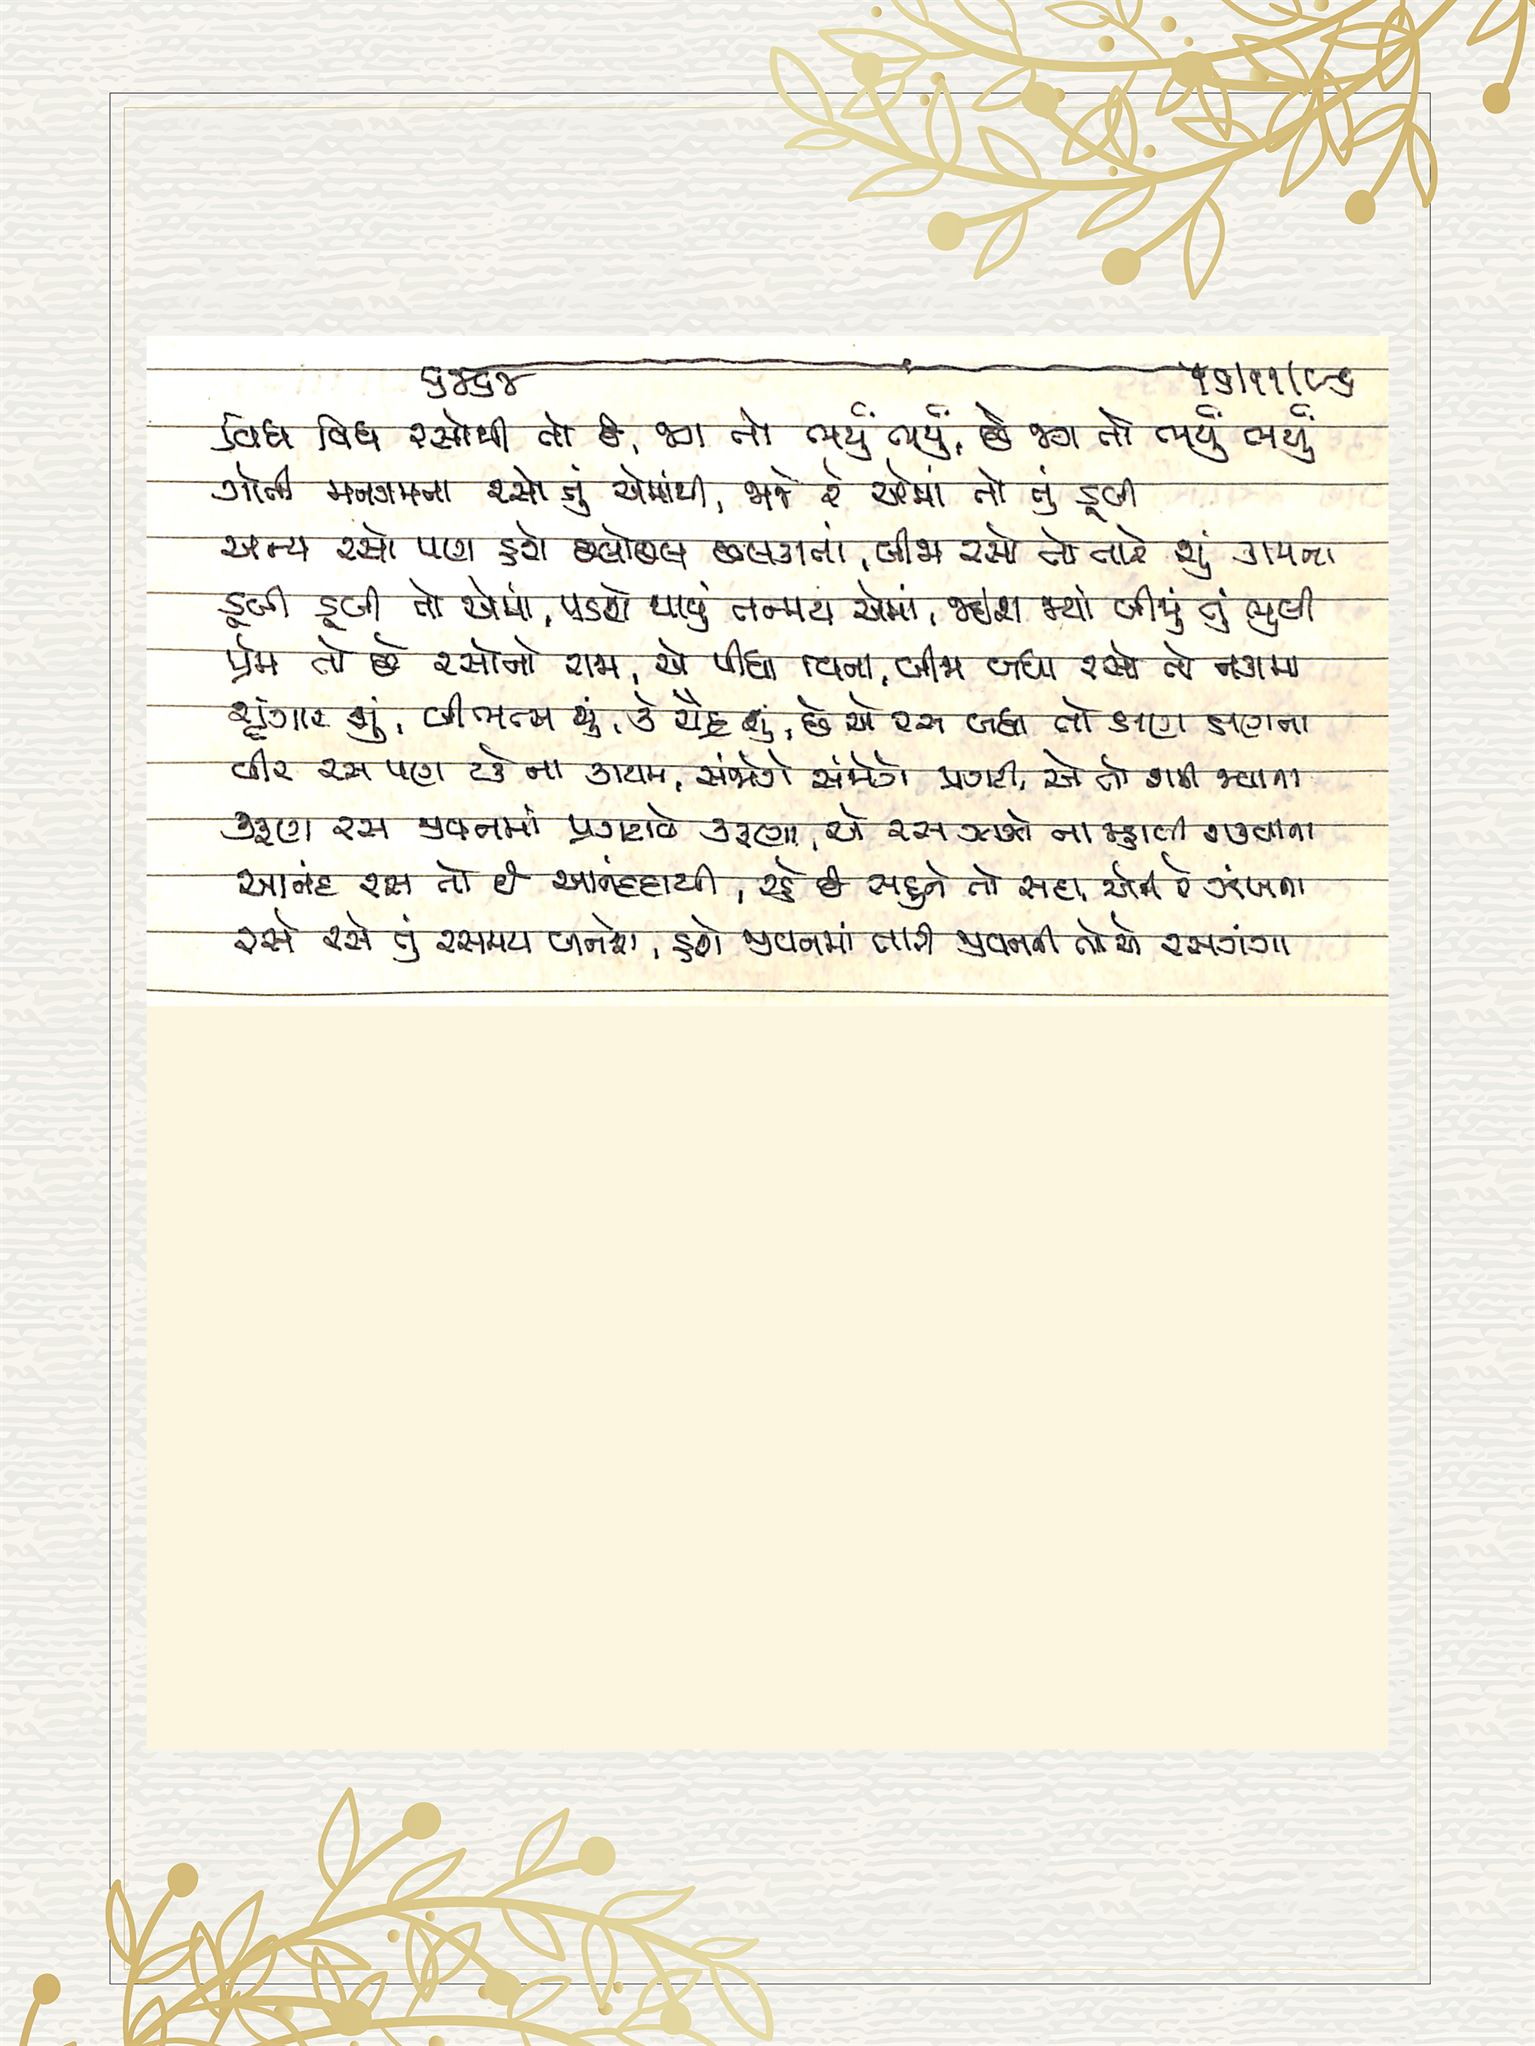 ૬૪૬૪ ૧૬/૧૧/૮૬
વિધ વિધ રસોથી તો છે, જગ તો ભર્યું ભર્યું, છે જગ તો ભર્યું ભર્યું
ગોતી મનગમતા રસો તું એમાંથી, જાજે રે એમાં તો તું ડૂબી
અન્ય રસો પણ હશે છલોછલ છલકાતાં, બીજા રસો તો તારે શું કામના
ડૂબી ડૂબી તો એમાં, પડશે થાવું તન્મય એમાં, જાશે બીજું તું ભુલી
પ્રેમ તો છે રસોનો રાજા, એ પીધા વિના, બીજા બધા રસો તો નકામા
શૃંગાર શું, બીભત્સ શું, કે રૌદ્ર શું, છે એ રસ બધા તો ક્ષણ ક્ષણના
વીર રસ પણ ટકે ના કાયમ, સંજોગે સંજોગે પ્રગટી, એ તો શમી જવાના
કરૂણ રસ જીવનમાં પ્રગટાવે કરૂણા, એ રસ ના
આનંદ રસ તો છે આનંદદાયી, રહે છે સહુને તો સદા, એની રે ઝંખના
રસે રસે તું રસમય બનશે, હશે જીવનમાં તારી જીવનની તો એ રસગંગા